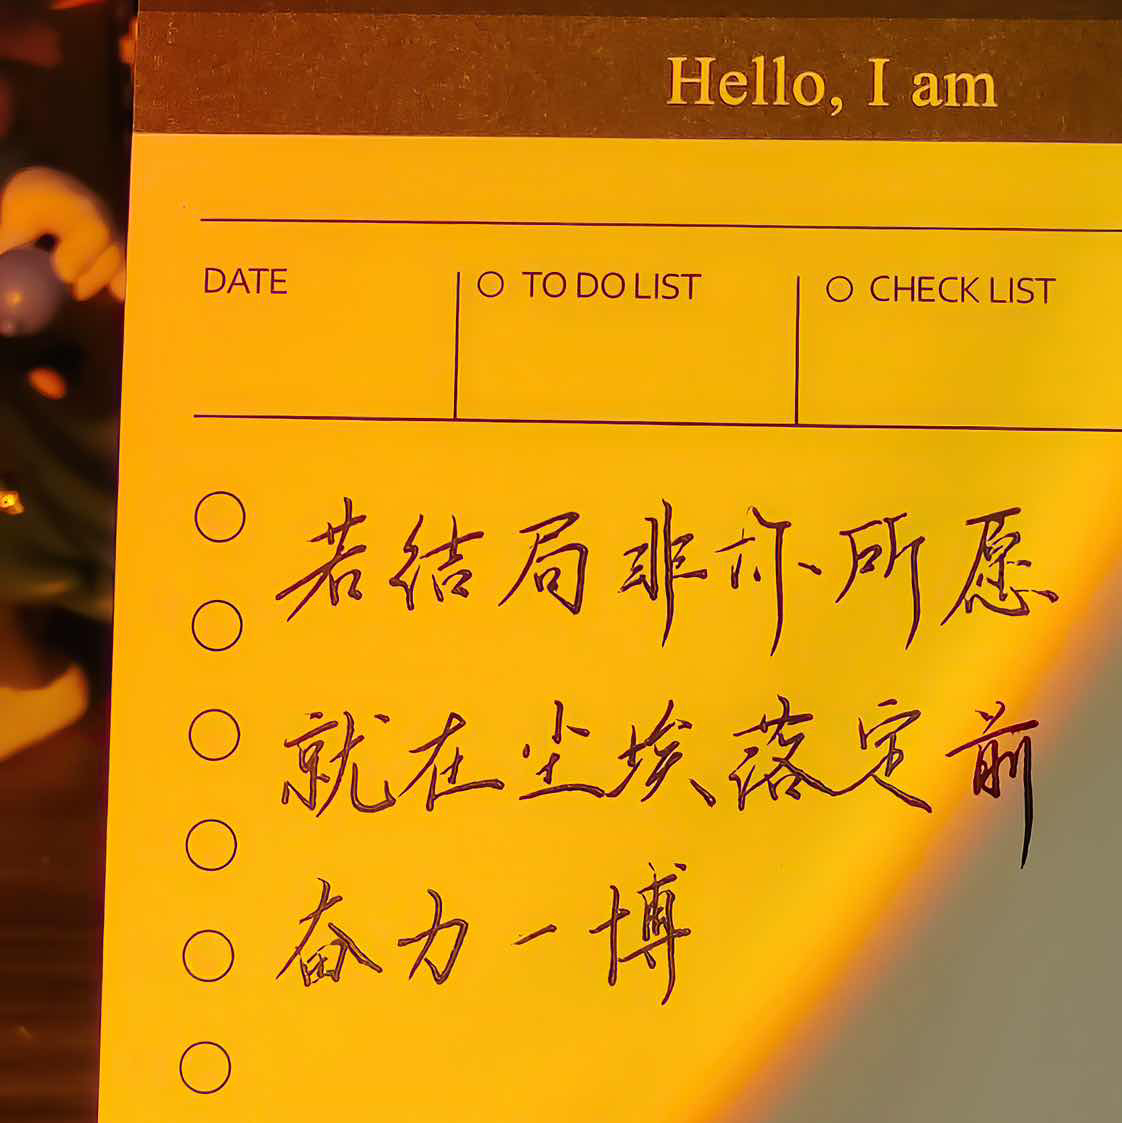 Hello, I am
DATE
○ TO DO LIST
○ CHECK LIST
若结局非你所愿
就在尘埃落定前
奋力一博